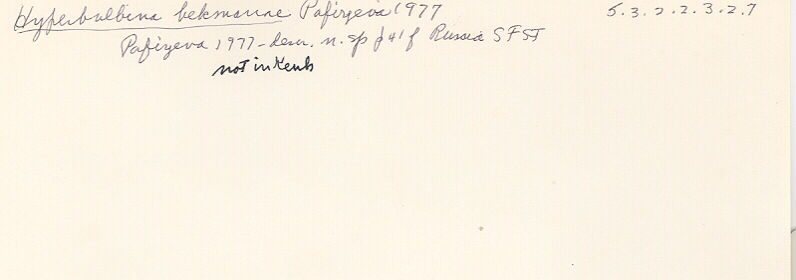 Hyperbulbina bekmanae Pafizeva 1977 5.3.2.2.3.2.7
Pafizeva 1977 - descr. n. sp f Russia SFSR
not in Kenk